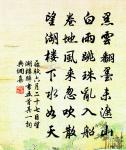 黑雲翻墨未遮山
白雨跳珠亂入船
卷地風來忽吹散
望湖樓下水如天
蘇軾六月二十七日望
湖樓醉書五首其一